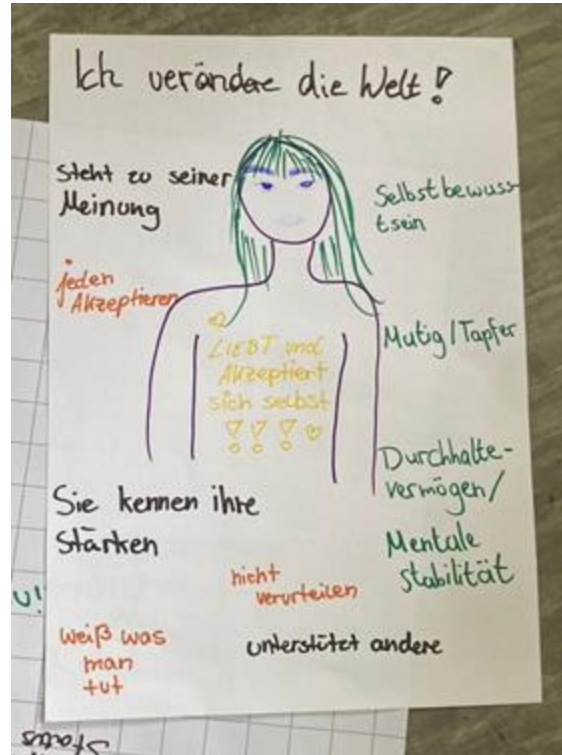 Ich verändere die Welt!
steht zu seiner
Meinung
Selbstbewuss-
tsein
jeden
Akzeptieren
Mutig/Tapfer
LIEBT und
Akzeptiert
sich selbst
!!!
Durchhalte-
vermögen/
Mentale
stabilität
Sie kennen ihre
Stärken
nicht
verurteilen
weiß was
man
tut
unterstützt andere
U!
Status